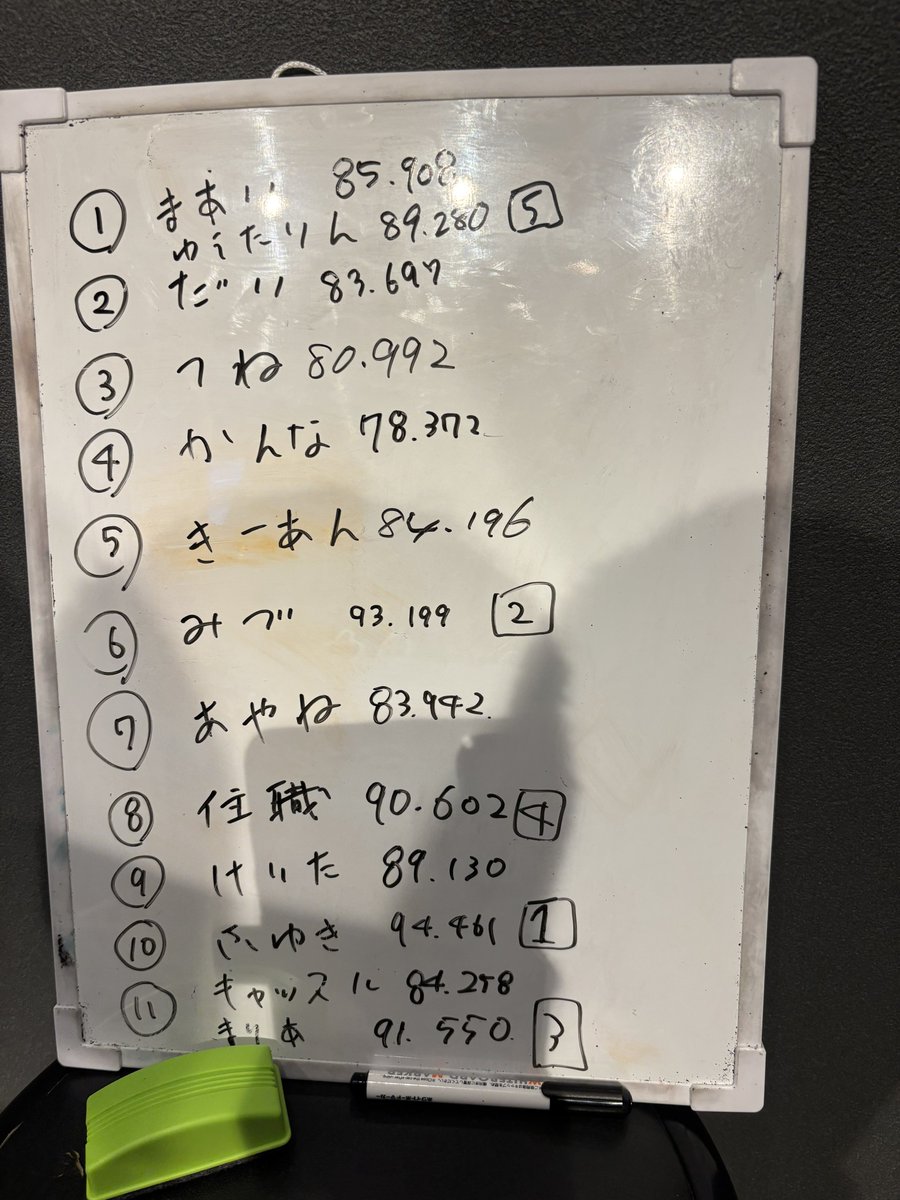 まあい 85.908
① ゆうたりん 89.280 5
② だい 83.697
③ つね 80.992
④ かんな 78.372
⑤ きーあん 84.196
⑥ みづ 93.199 2
⑦ あやね 83.942
⑧ 住職 90.602 4
⑨ けいた 89.130
⑩ ふゆき 94.461 1
キャッスル 84.258
⑪ まりあ 91.550 3